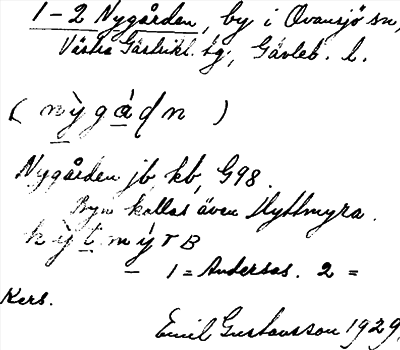 1-2 Nygården, by i Ovansjö sn,
Västra Gästrikl. tg, Gävleb. l.
(nỳgádn)
Nygården jb, kb, G98.
Byn kallas även Hyttmyra.
1 = Andersas. 2 =
Kers.
Emil Gustavsson 1929.